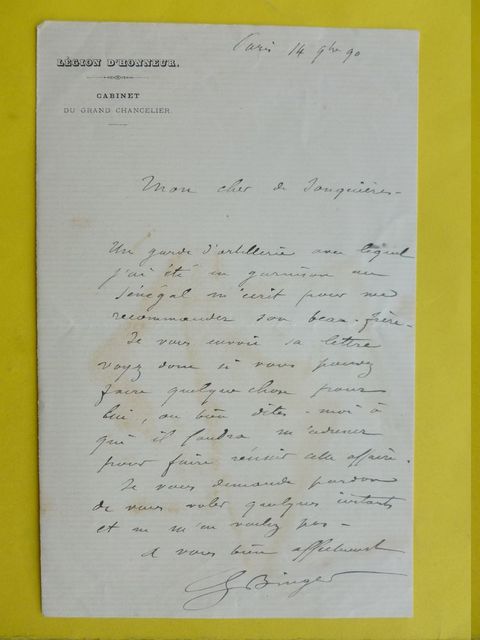 Paris 14 9bre 90
LÉGION D'HONNEUR.
CABINET
DU GRAND CHANCELIER.
Mon cher de Jonquières -
Un garde d'artillerie avec lequel
j'ai été en garnison au
Sénégal m'écrit pour me
recommander son beau-frère -
Je vous envoie sa lettre
voyez donc si vous pouvez
faire quelque chose pour
lui, ou bien dites-moi à
qui il faudra m'adresser
pour faire réussir cette affaire.
Je vous demande pardon
de vous voler quelques instants
et ne m'en voulez pas -
A vous bien affectueusement
G Binger